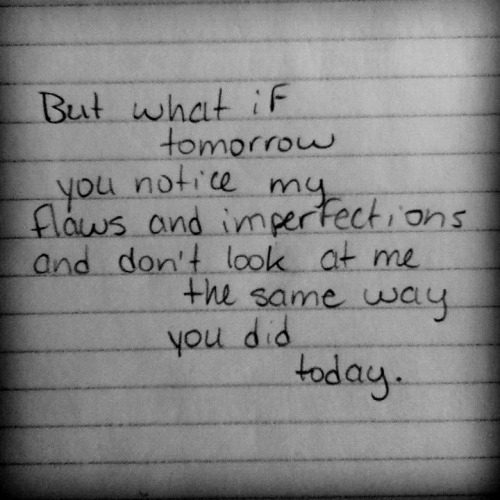 But what if
tomorrow
you notice my
flaws and imperfections
and don't look at me
the same way
you did
today.